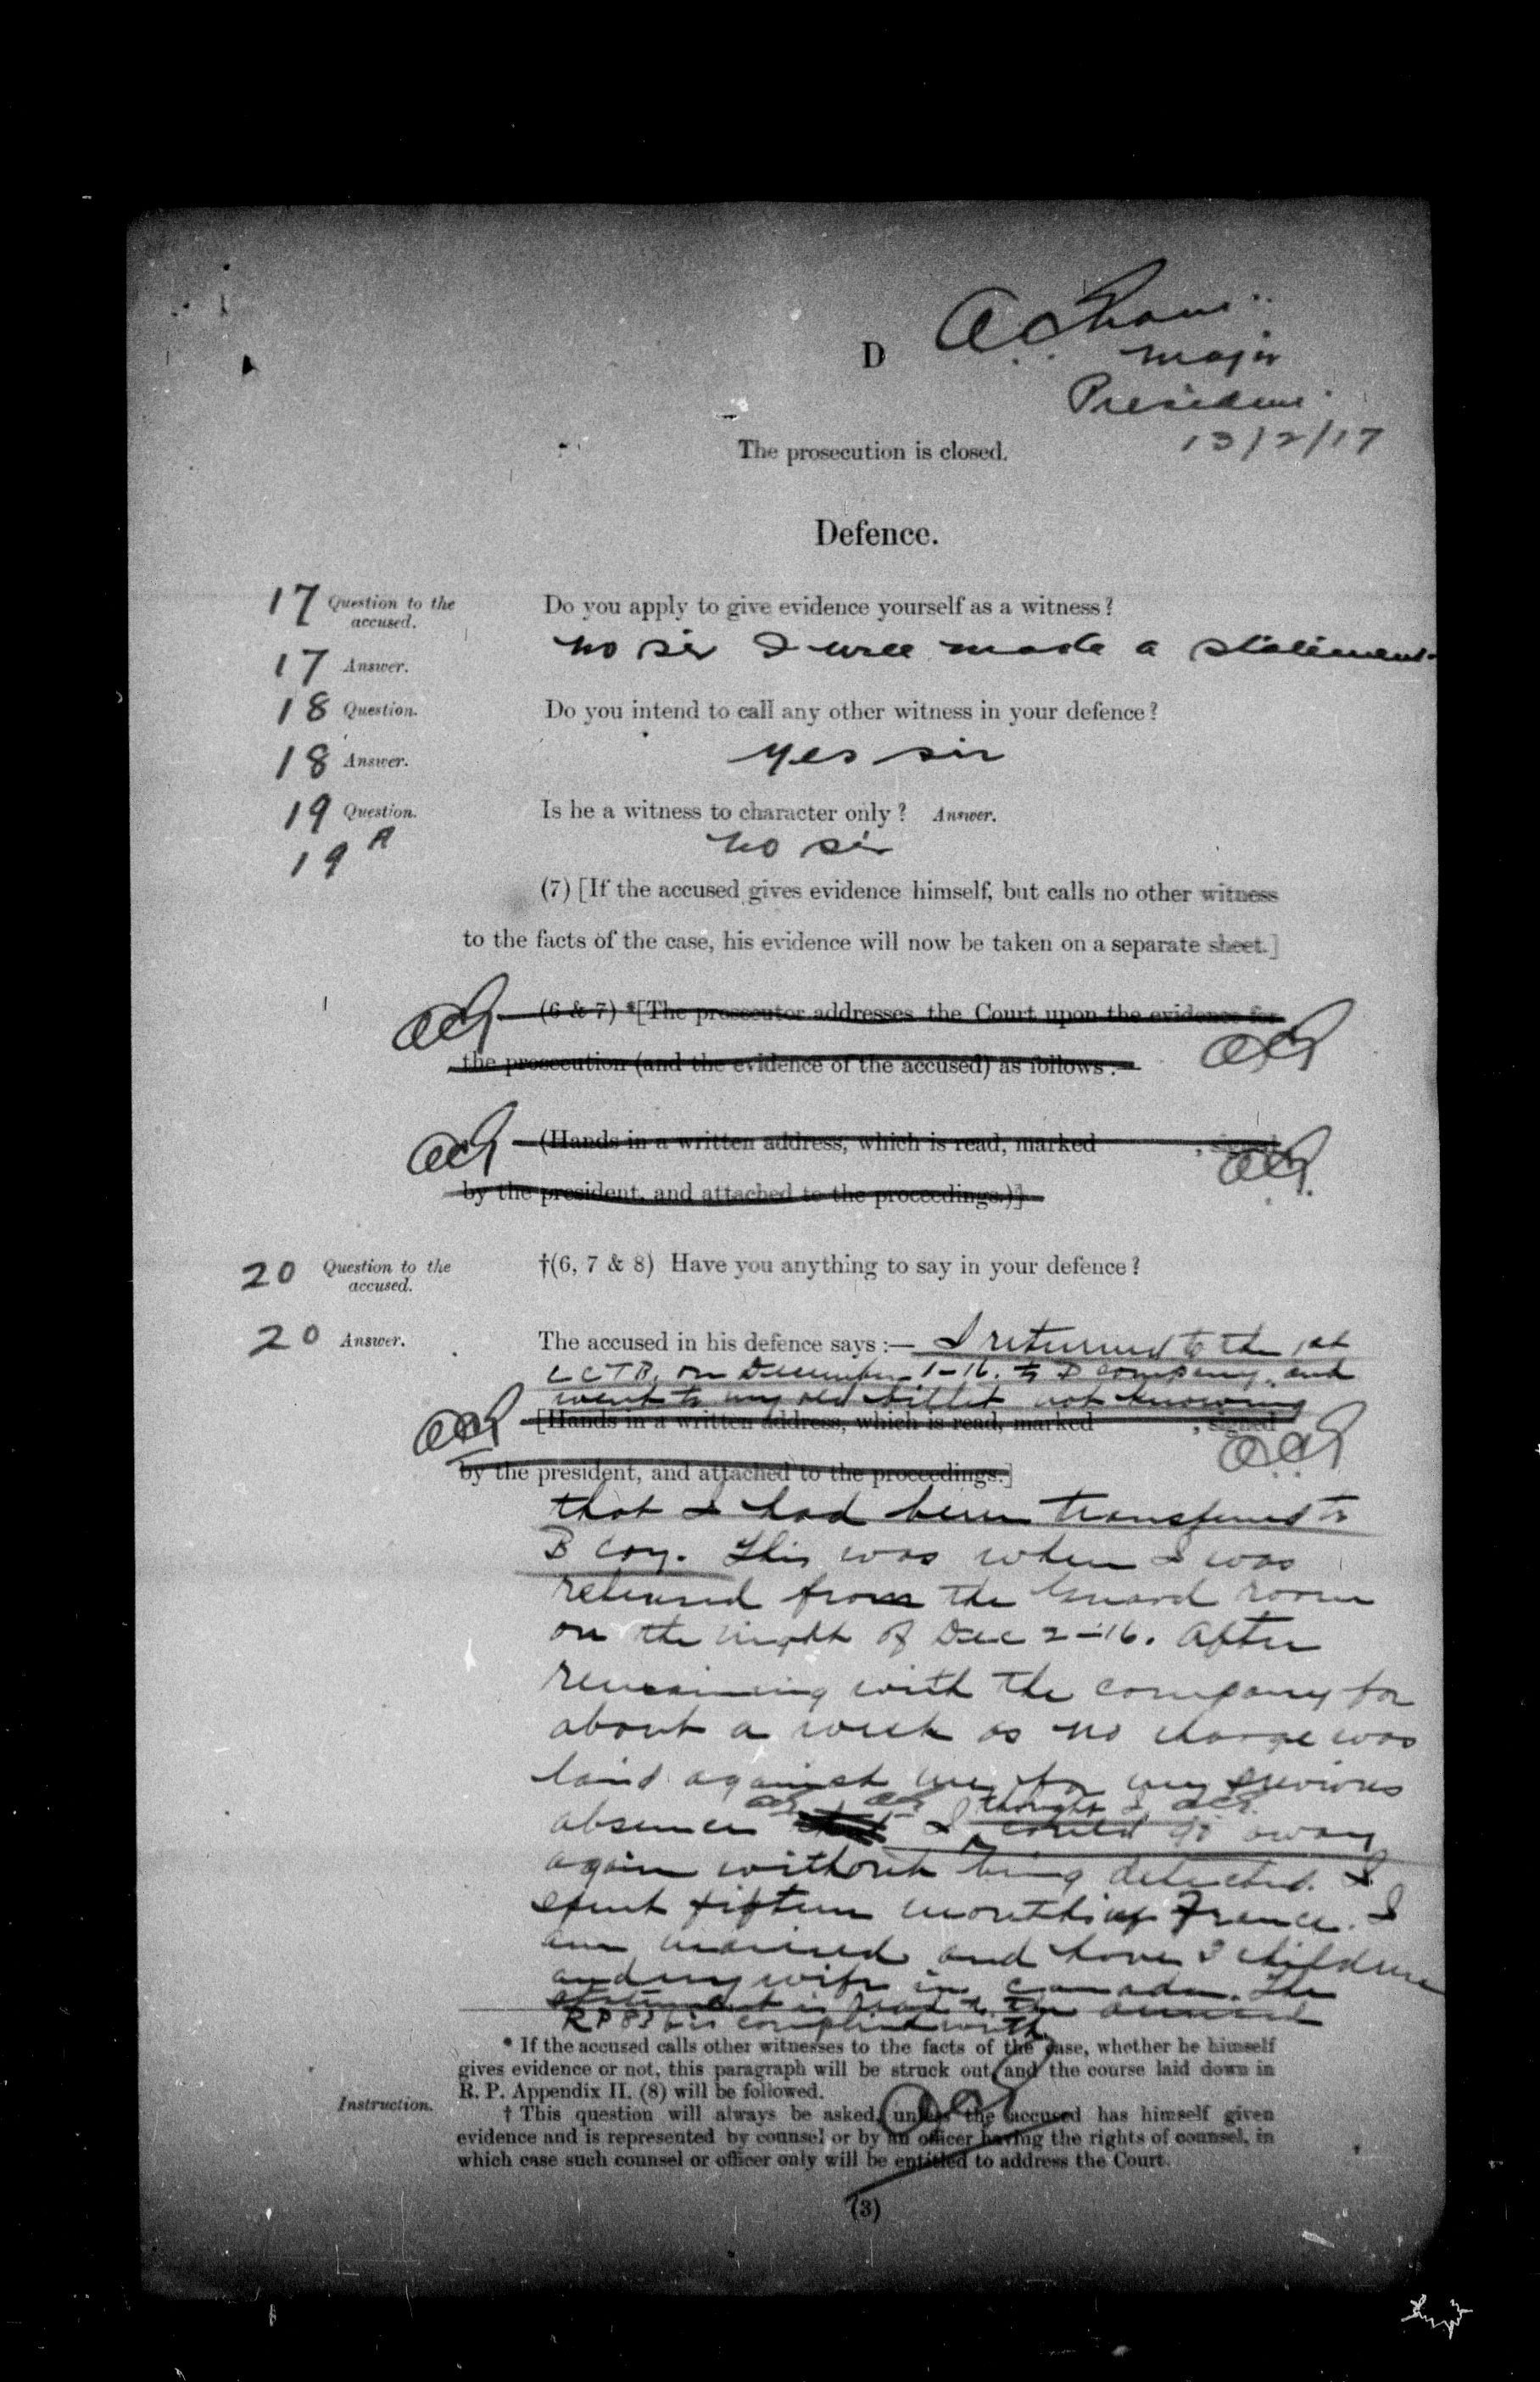 D
Major
President
13/2/17
The prosecution is closed.
Defence.
17 Question to the accused. Do you apply to give evidence yourself as a witness?
17 Answer. No sir I will made a statement.
18 Question. Do you intend to call any other witness in your defence?
18 Answer. Yes sir
19 Question. Is he a witness to character only? Answer.
19 A No sir
(7) [If the accused gives evidence himself, but calls no other witness
to the facts of the case, his evidence will now be taken on a separate sheet.]
(6 & 7) *[The prosecutor addresses the Court upon the evidence for
the prosecution (and the evidence of the accused) as follows:—
(Hands in a written address, which is read, marked , signed
by the president, and attached to the proceedings.)]
20 Question to the accused. †(6, 7 & 8) Have you anything to say in your defence?
20 Answer. The accused in his defence says:— I returned to the 1st
C T B, on December 1-16. to D company and
went to my old billet not knowing
[Hands in a written address, which is read, marked , signed
by the president, and attached to the proceedings.]
that I had been transferred to
B Coy. This was when I was
released from the Guard room
on the night of Dec 2-16. After
remaining with the company for
about a week as no charge was
laid against me for my previous
absence I thought I could go away
again without being detected. I
spent fifteen months in France. I
am married and have 2 children
and my wife in Canada. The
statement is read to the accused
RP 83 b is complied with
* If the accused calls other witnesses to the facts of the case, whether he himself
gives evidence or not, this paragraph will be struck out and the course laid down in
R. P. Appendix II. (8) will be followed.
Instruction. † This question will always be asked, unless the accused has himself given
evidence and is represented by counsel or by an officer having the rights of counsel, in
which case such counsel or officer only will be entitled to address the Court.
(3)